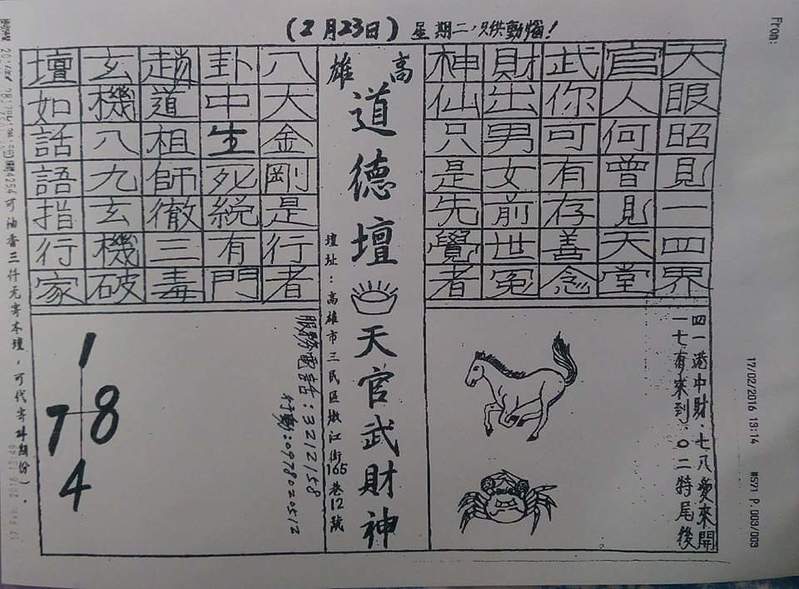 (2月23日) 星期二,只供動惱!
From:
天眼昭見一四界
官人何曾見天堂
武你可有存善念
財出男女前世冤
神仙只是先覺者
高雄
道德壇
天官武財神
壇址:高雄市三民區嫩江街165巷12號
八大金剛是行者
卦中生死統有門
趙道祖師徹三毒
玄機八九玄機破
壇如話語指行家
四一港中財.七八愛來開
一七有來到.0二特尾後
1
7 8
4
服務電話:3212158
行動:0978020512
可油香三仟元寄本壇,可代寄
17/02/2016 13:14
P.003/003